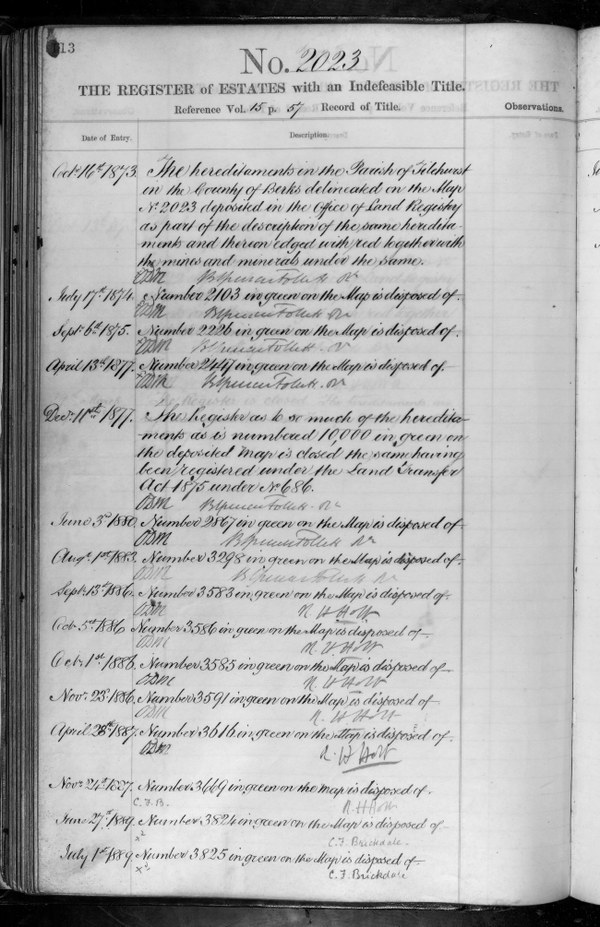 13
No. 2023
THE REGISTER of ESTATES with an Indefeasible Title.
Reference Vol. 15 p. 57 Record of Title.
Observations.
Date of Entry.
Description.
Oct. 16th 1873. The hereditaments in the Parish of Tilehurst
in the County of Berks delineated on the Map
No. 2023 deposited in the Office of Land Registry
as part of the description of the same heredita-
ments and thereon edged with red together with
the mines and minerals under the same.
July 17th 1874. Number 2103 in green on the Map is disposed of.
Sept. 6th 1875. Number 2226 in green on the Map is disposed of.
April 13th 1877. Number 2447 in green on the Map is disposed of.
Decr. 11th 1877. The Register as to so much of the heredita-
ments as is numbered 10,000 in green on
the deposited Map is closed the same having
been registered under the Land Transfer
Act 1875 under No. 686.
June 3d 1880. Number 2867 in green on the Map is disposed of
Augt. 1st 1883. Number 3298 in green on the Map is disposed of.
Sept. 13th 1886. Number 3583 in green on the Map is disposed of
R H Holt
Oct. 5th 1886 Number 3586 in green on the Map is disposed of
R H Holt
Oct. 1st 1886. Number 3585 in green on the Map is disposed of
R H Holt
Novr. 23d 1886. Number 3591 in green on the Map is disposed of
R H Holt
April 28th 1887. Number 3616 in green on the Map is disposed of.
R. H Holt
Novr. 24th 1887. Number 3669 in green on the map is disposed of
C. F. B. R H Holt
June 27th 1889. Number 3824 in green on the Map is disposed of
x2 C. F. Brickdale.
July 1st 1889. Number 3825 in green on the Map is disposed of
C. F. Brickdale